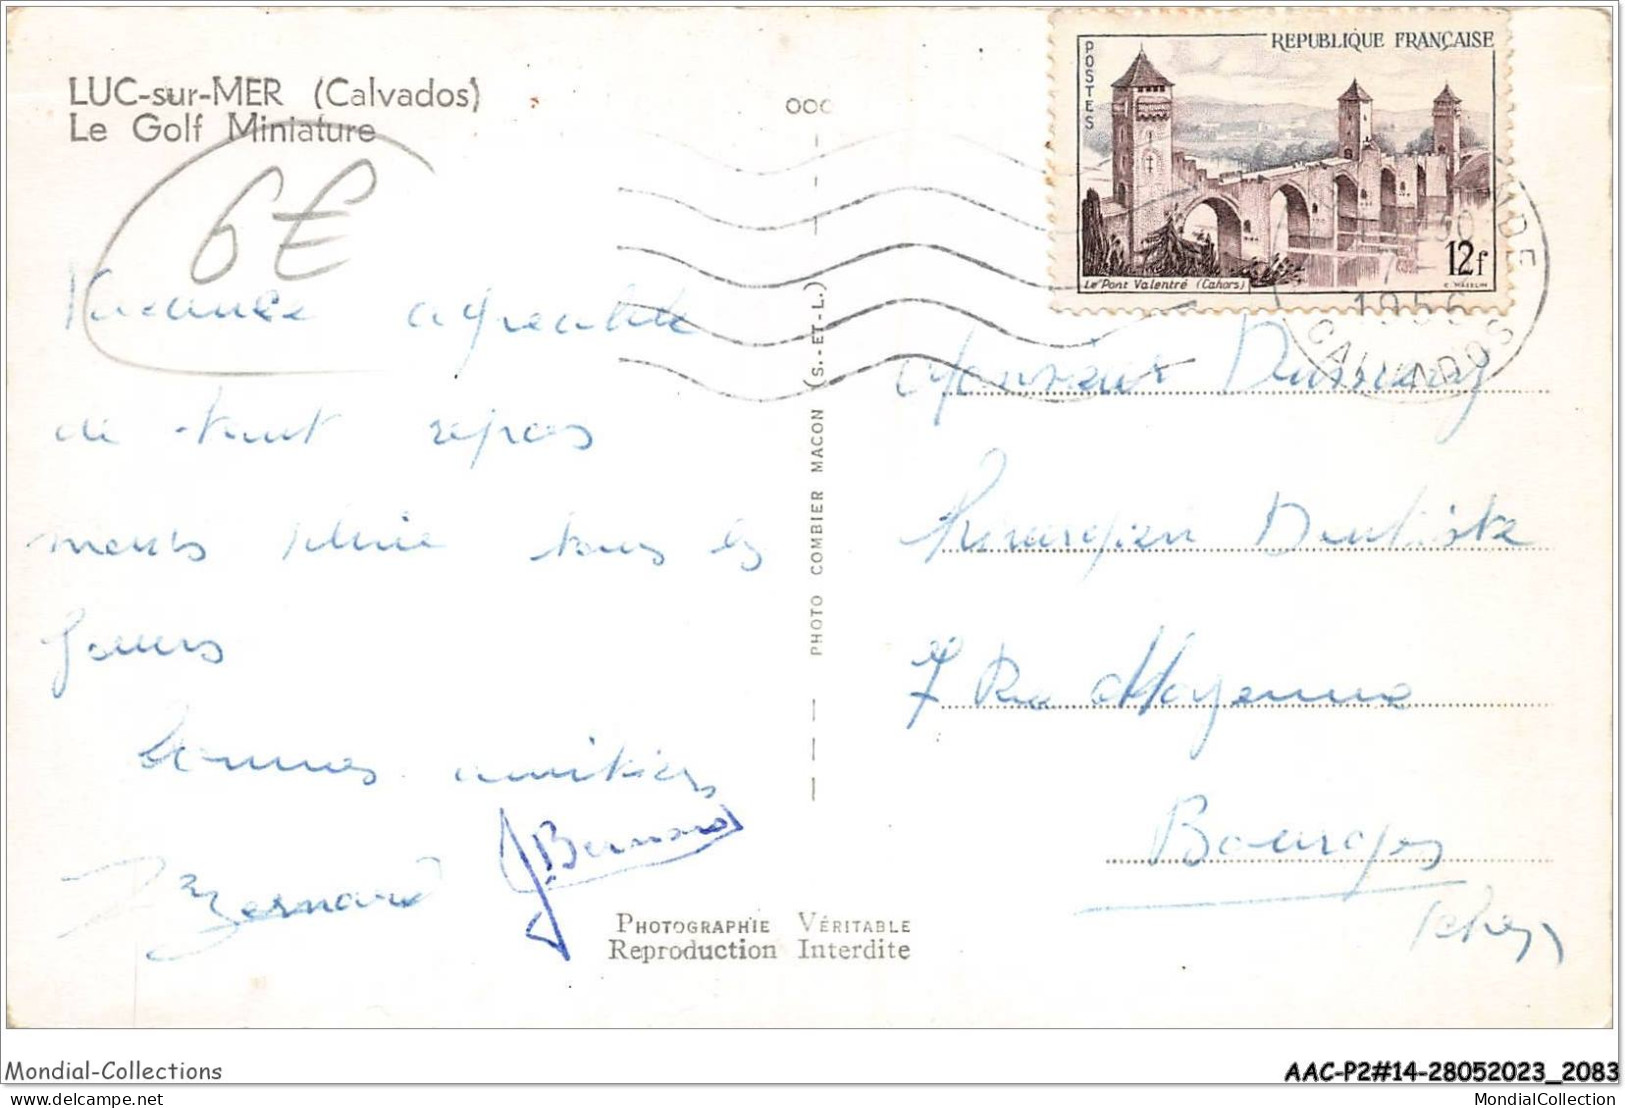 LUC-sur-MER (Calvados)
Le Golf Miniature
6€
Vacance agréable
de tout repos
mais pluie tous les
jours
bonnes amitiés
Bernard
J. Bernard
PHOTO COMBIER MACON (S.-ET-L.)
PHOTOGRAPHIE VÉRITABLE
Reproduction Interdite
REPUBLIQUE FRANÇAISE
POSTES
12f
Le Pont Valentré (Cahors)
1956
CALVADOS
Monsieur
Chirurgien Dentiste
7 Rue Moyenne
Bourges
(Cher)
Mondial-Collections
AAC-P2#14-28052023_2083
delcampe.net
MondialCollection